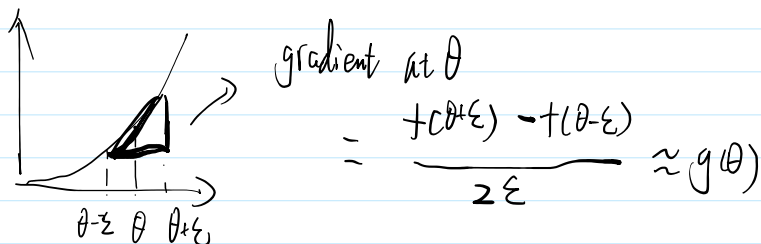 gradient at θ
= f(θ+ε) - f(θ-ε) / 2ε ≈ g(θ)
θ-ε θ θ+ε